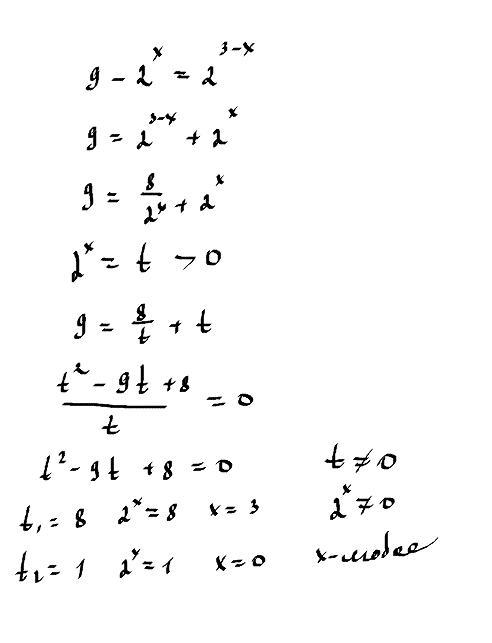 9 - 2^x = 2^{3-x}
9 = 2^{3-x} + 2^x
9 = 8/2^x + 2^x
2^x = t > 0
9 = 8/t + t
(t^2 - 9t + 8)/t = 0
t^2 - 9t + 8 = 0 t ≠ 0
t_1 = 8 2^x = 8 x = 3 2^x ≠ 0
t_2 = 1 2^x = 1 x = 0 x - любое